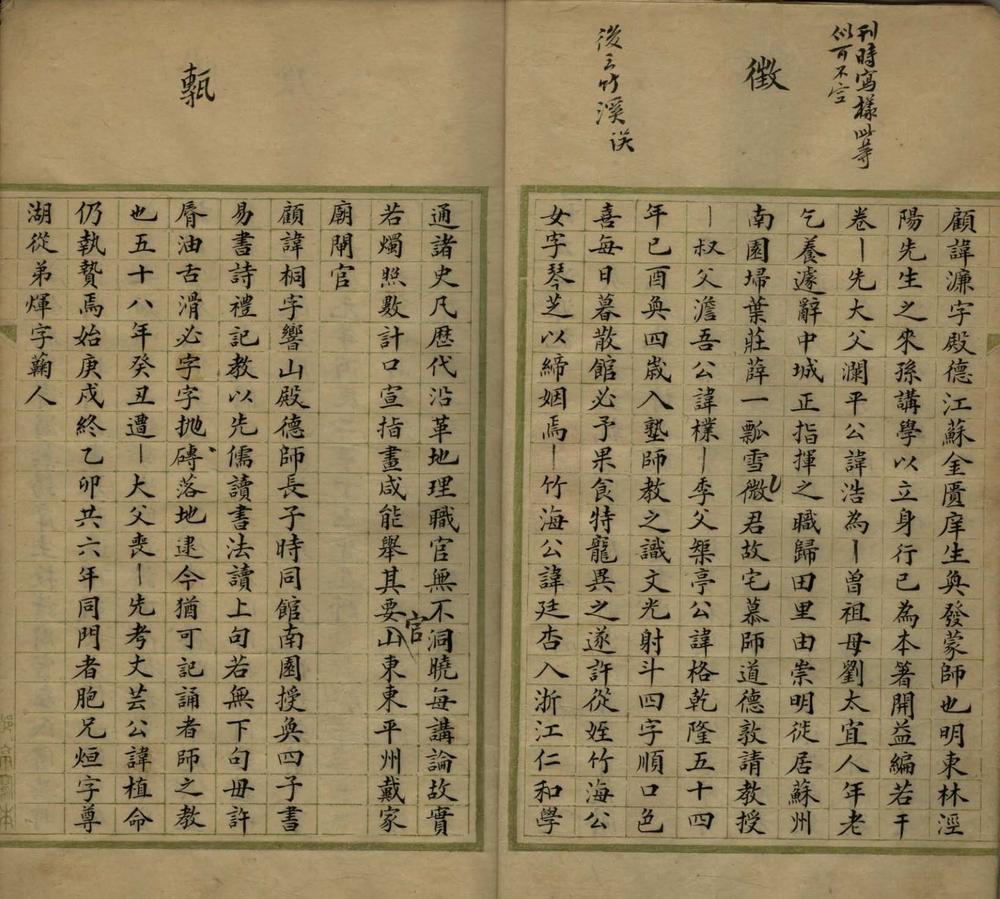 刊時寫樣此等
似可不空
徵
後云竹溪誤
顧諱濂字殿德江蘇金匱庠生奐發蒙師也明東林涇
陽先生之來孫講學以立身行已為本著開益編若干
卷〡先大父瀾平公諱浩為〡曾祖母劉太宜人年老
乞養遽辭中城正指揮之職歸田里由崇明徙居蘇州
南園埽葉莊薛一瓢雪微君故宅慕師道德敦請教授
〡叔父澹吾公諱樸〡季父槃亭公諱格乾隆五十四
年已酉奐四歲入塾師教之識文光射斗四字順口色
喜每日暮散館必予果食特寵異之遂許從姪竹海公
女字琴芝以締姻焉〡竹海公諱廷杏入浙江仁和學
甎
通諸史凡歷代沿革地理職官無不洞曉每講論故實
若燭照數計口宣指畫咸能舉其要官山東東平州戴家
廟閘官
顧諱桐字響山殿德師長子時同館南園授奐四子書
易書詩禮記教以先儒讀書法讀上句若無下句毋許
脣油古滑必字字拋磚落地逮今猶可記誦者師之教
也五十八年癸丑遭〡大父喪〡先考丈芸公諱植命
仍執贄焉始庚戍終乙卯共六年同門者胞兄烜字尊
湖從弟煇字蘜人